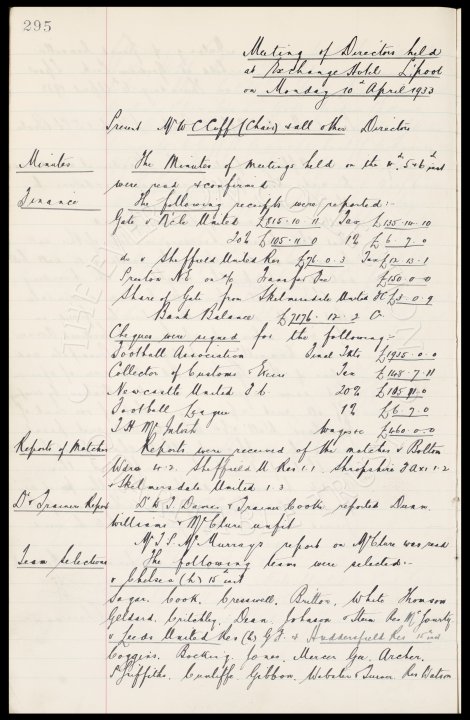 295
Meeting of Directors held
at Exchange Hotel L'pool
on Monday 10th April 1933
Present Mr W C Cuff (Chair) & all other Directors
Minutes The Minutes of meetings held on the 4th, 5 & 6th inst
were read & confirmed
Finance The following receipts were reported:-
Gate v Ncle United £815-10-11 Tax £135-14-10
20% £105-11-0 1% £6-7-0
do v Sheffield United Res £76-0-3 Tax £12-13-1
Preston NE on a/c Transfer Fee £150-0-0
Share of Gate from Skelmersdale United FC £3-0-9
Bank Balance £7176-12-2 O
Cheques were signed for the following:-
Football Association Final Tkts £1925-0-0
Collector of Customs & Excise Tax £148-7-11
Newcastle United F.C. 20% £105-11-0
Football League 1% £6-7-0
T.H. McIntosh Wages &c £460-0-0
Reports of Matches Reports were received of the matches v Bolton
Wdrs 4.2. Sheffield U Res 1.1. Shropshire F.A. 1.2
& Skelmersdale United 1.3.
Dr & Trainers Report Dr & J. Davies & Trainer Cooke reported Dunn,
Williams & McClure unfit
Mr T.S. McMurray's report on McClure was read
Team Selections The following teams were selected:-
v Chelsea (h) 15th inst
Sagar. Cook. Cresswell. Britton. White. Thomson
Geldard. Critchley. Dean. Johnson & Stein Res McGourty
v Leeds United Res (h) G.F. & Huddersfield Res 15th inst
Coggins. Bocking. Jones. Mercer. Gee. Archer.
P. Griffiths. Cunliffe. Gibbon. Webster & Turner. Res Watson